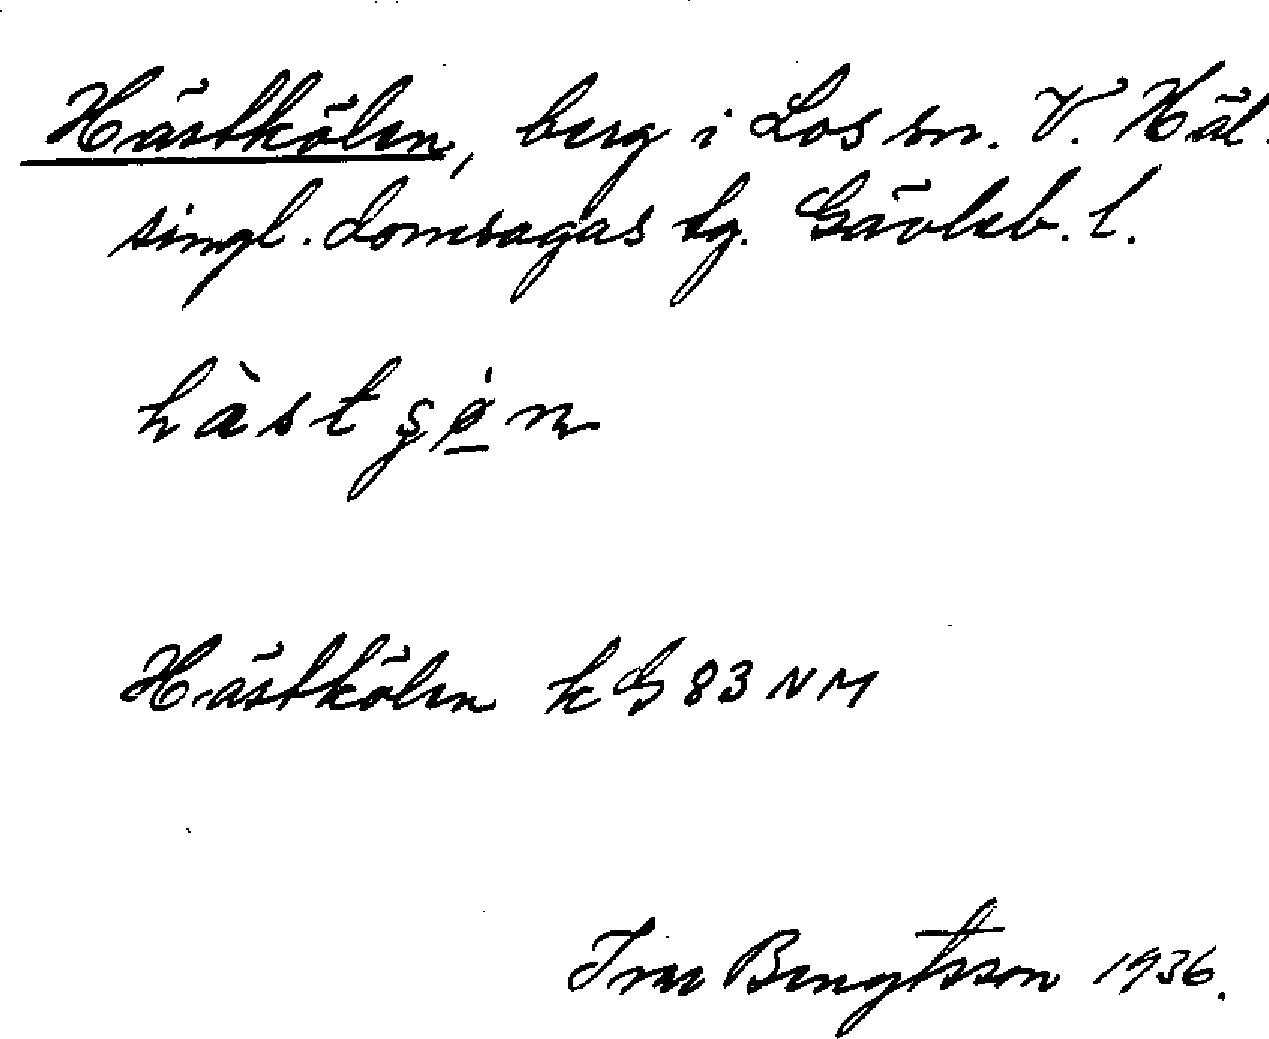 Hästkölen, berg i Los sn. V. Häl.
singl. domsagas tg. Gävleb. l.
hàstş
Hästkölen k G 83 NM
Ivar Bengtsson 1936.